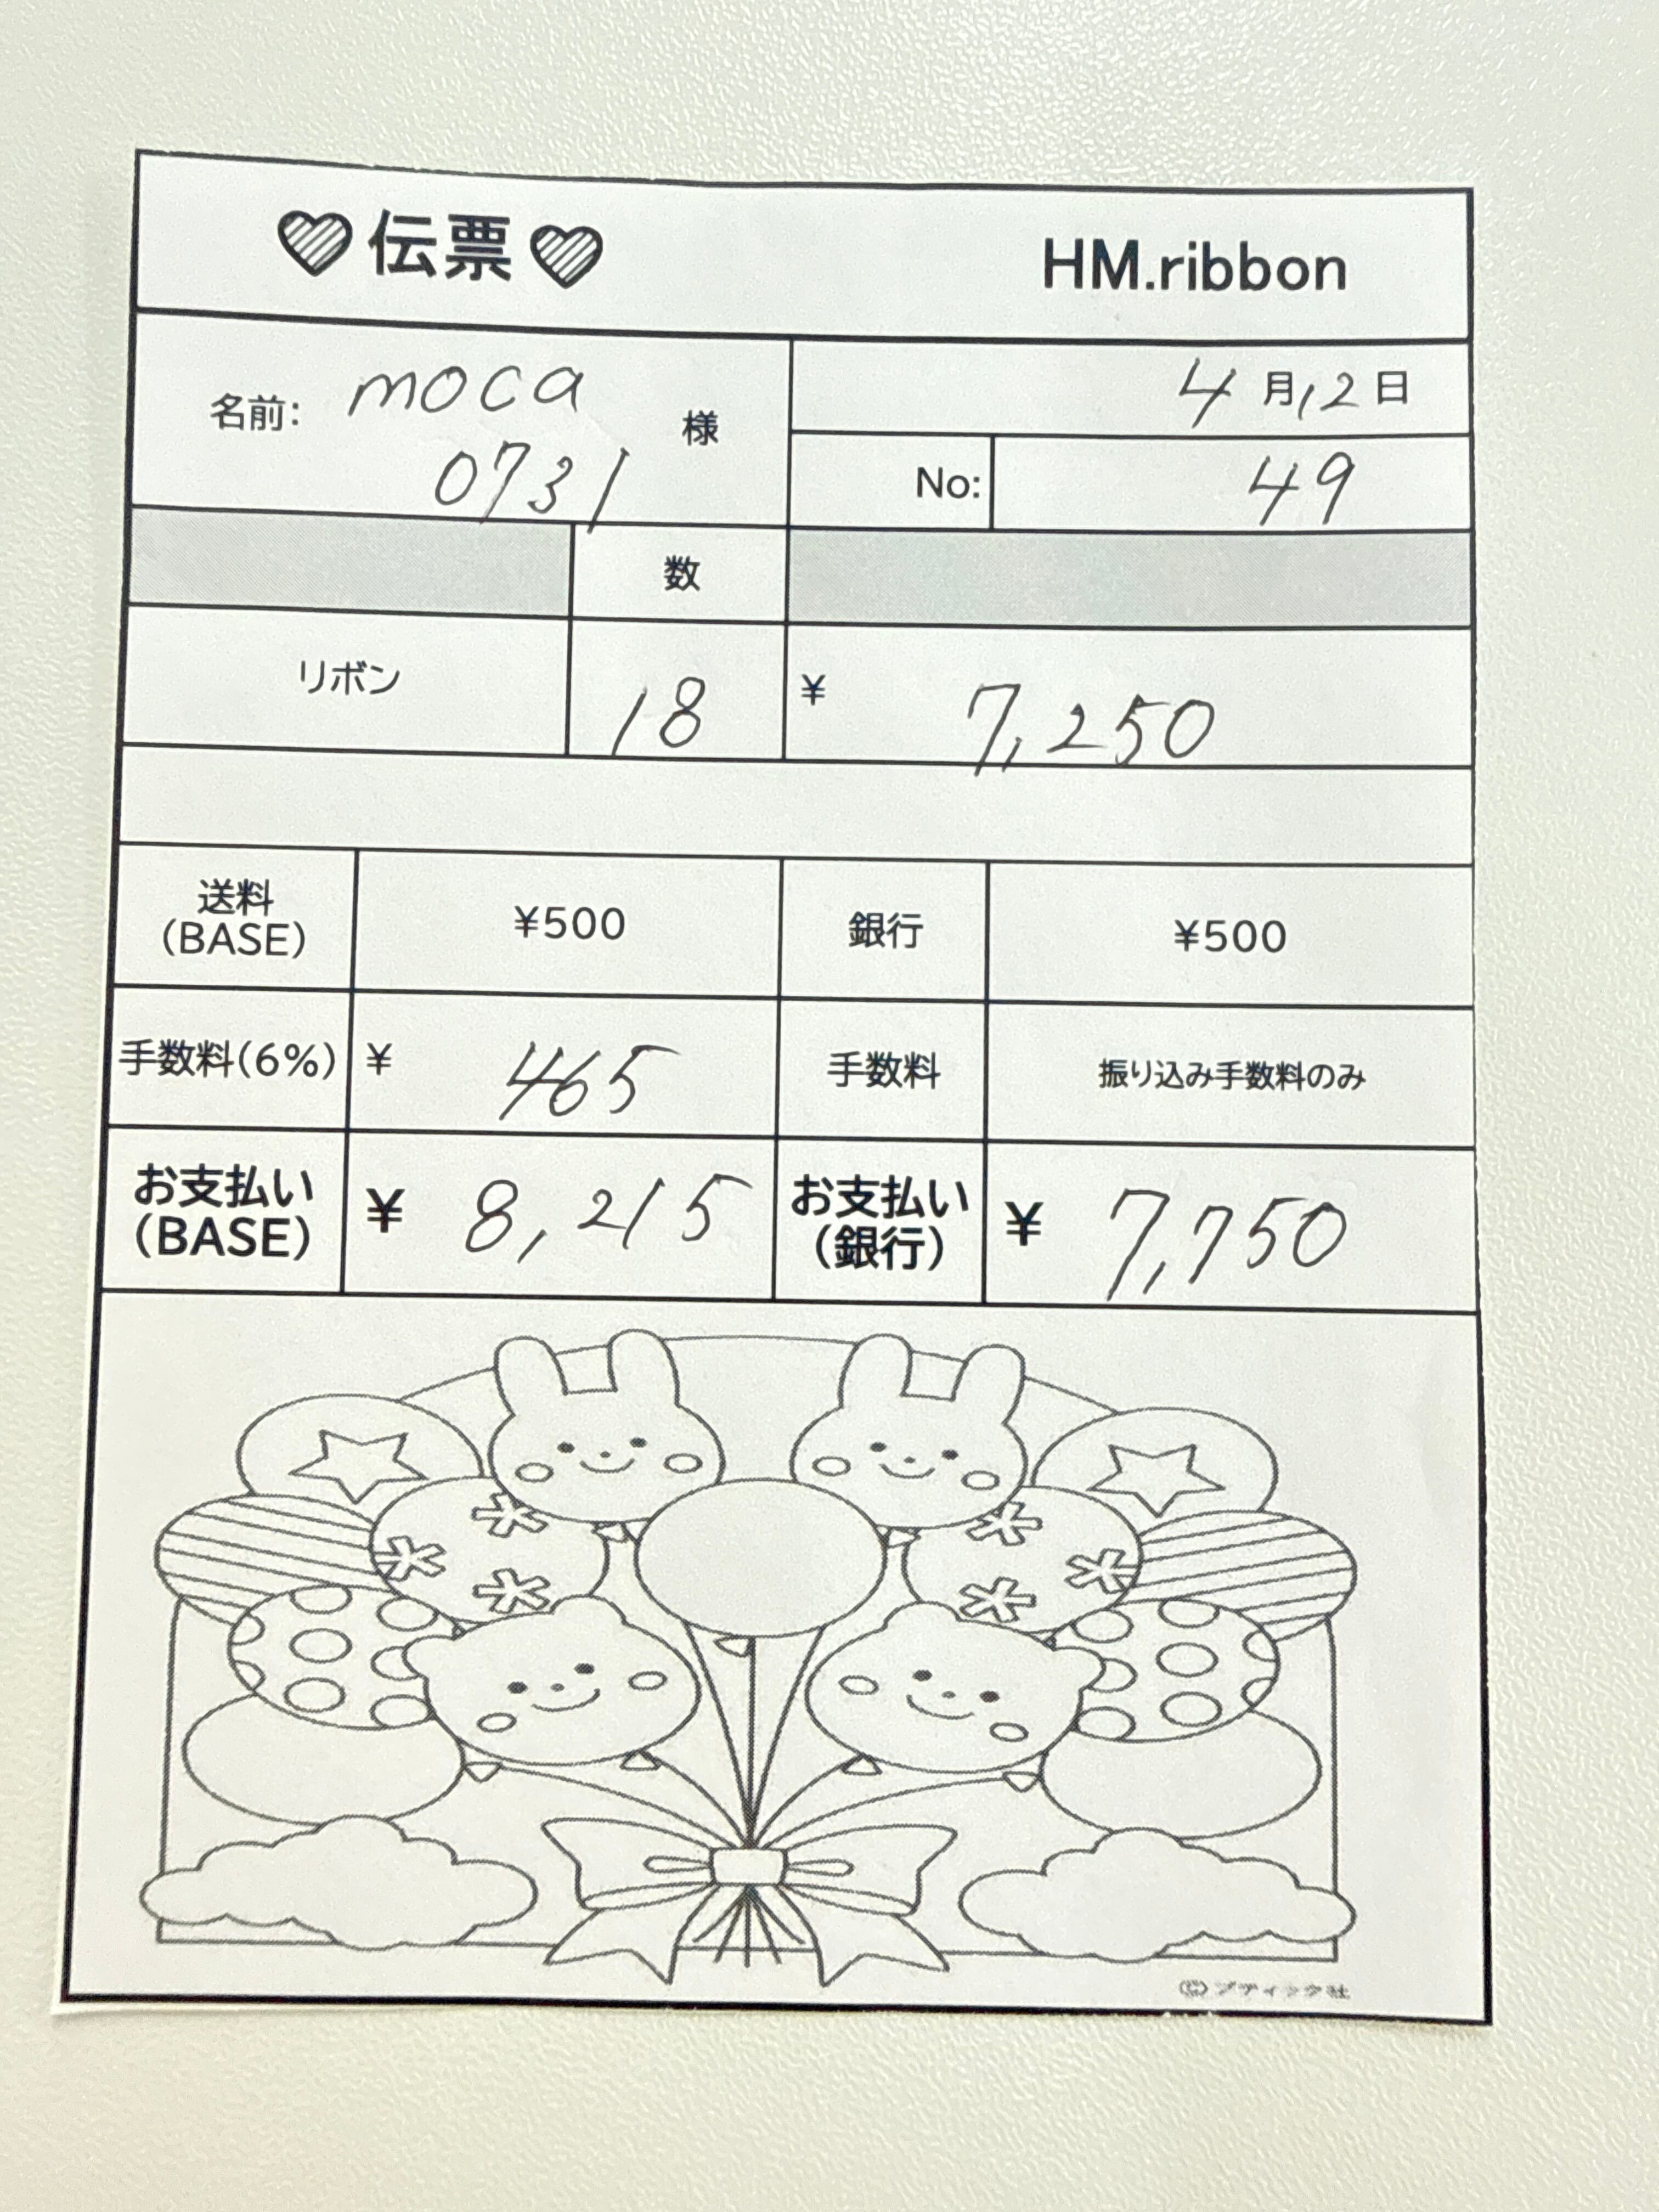 伝票 HM.ribbon
名前: moca 0731 様
4月12日
No: 49
数
リボン 18 ¥ 7,250
送料(BASE) ¥500 銀行 ¥500
手数料(6%) ¥ 465 手数料 振り込み手数料のみ
お支払い(BASE) ¥ 8,215 お支払い(銀行) ¥ 7,750
©ブティック社